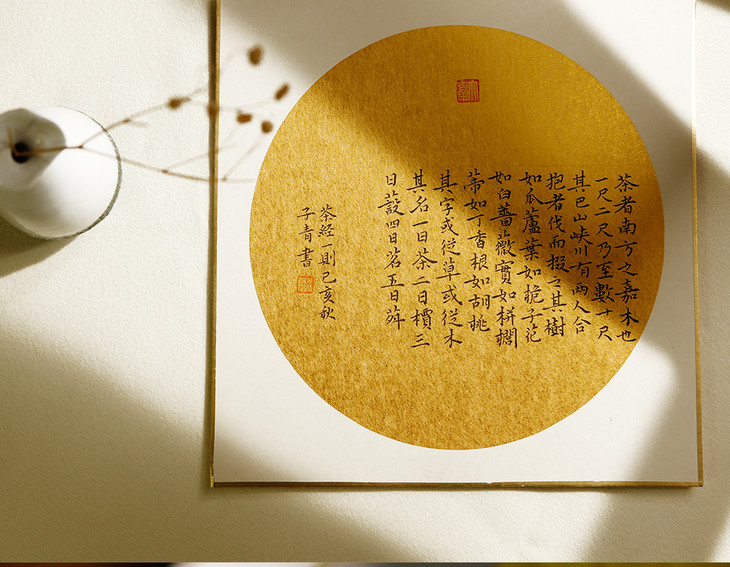 茶者南方之嘉木也
一尺二尺乃至數十尺
其巴山峡川有兩人合
抱者伐而掇之其樹
如瓜蘆葉如梔子花
如白薔薇實如栟櫚
蒂如丁香根如胡桃
其字或從草或從木
其名一曰茶二曰檟三
曰蔎四曰茗五曰荈
茶経一則己亥秋
子青書